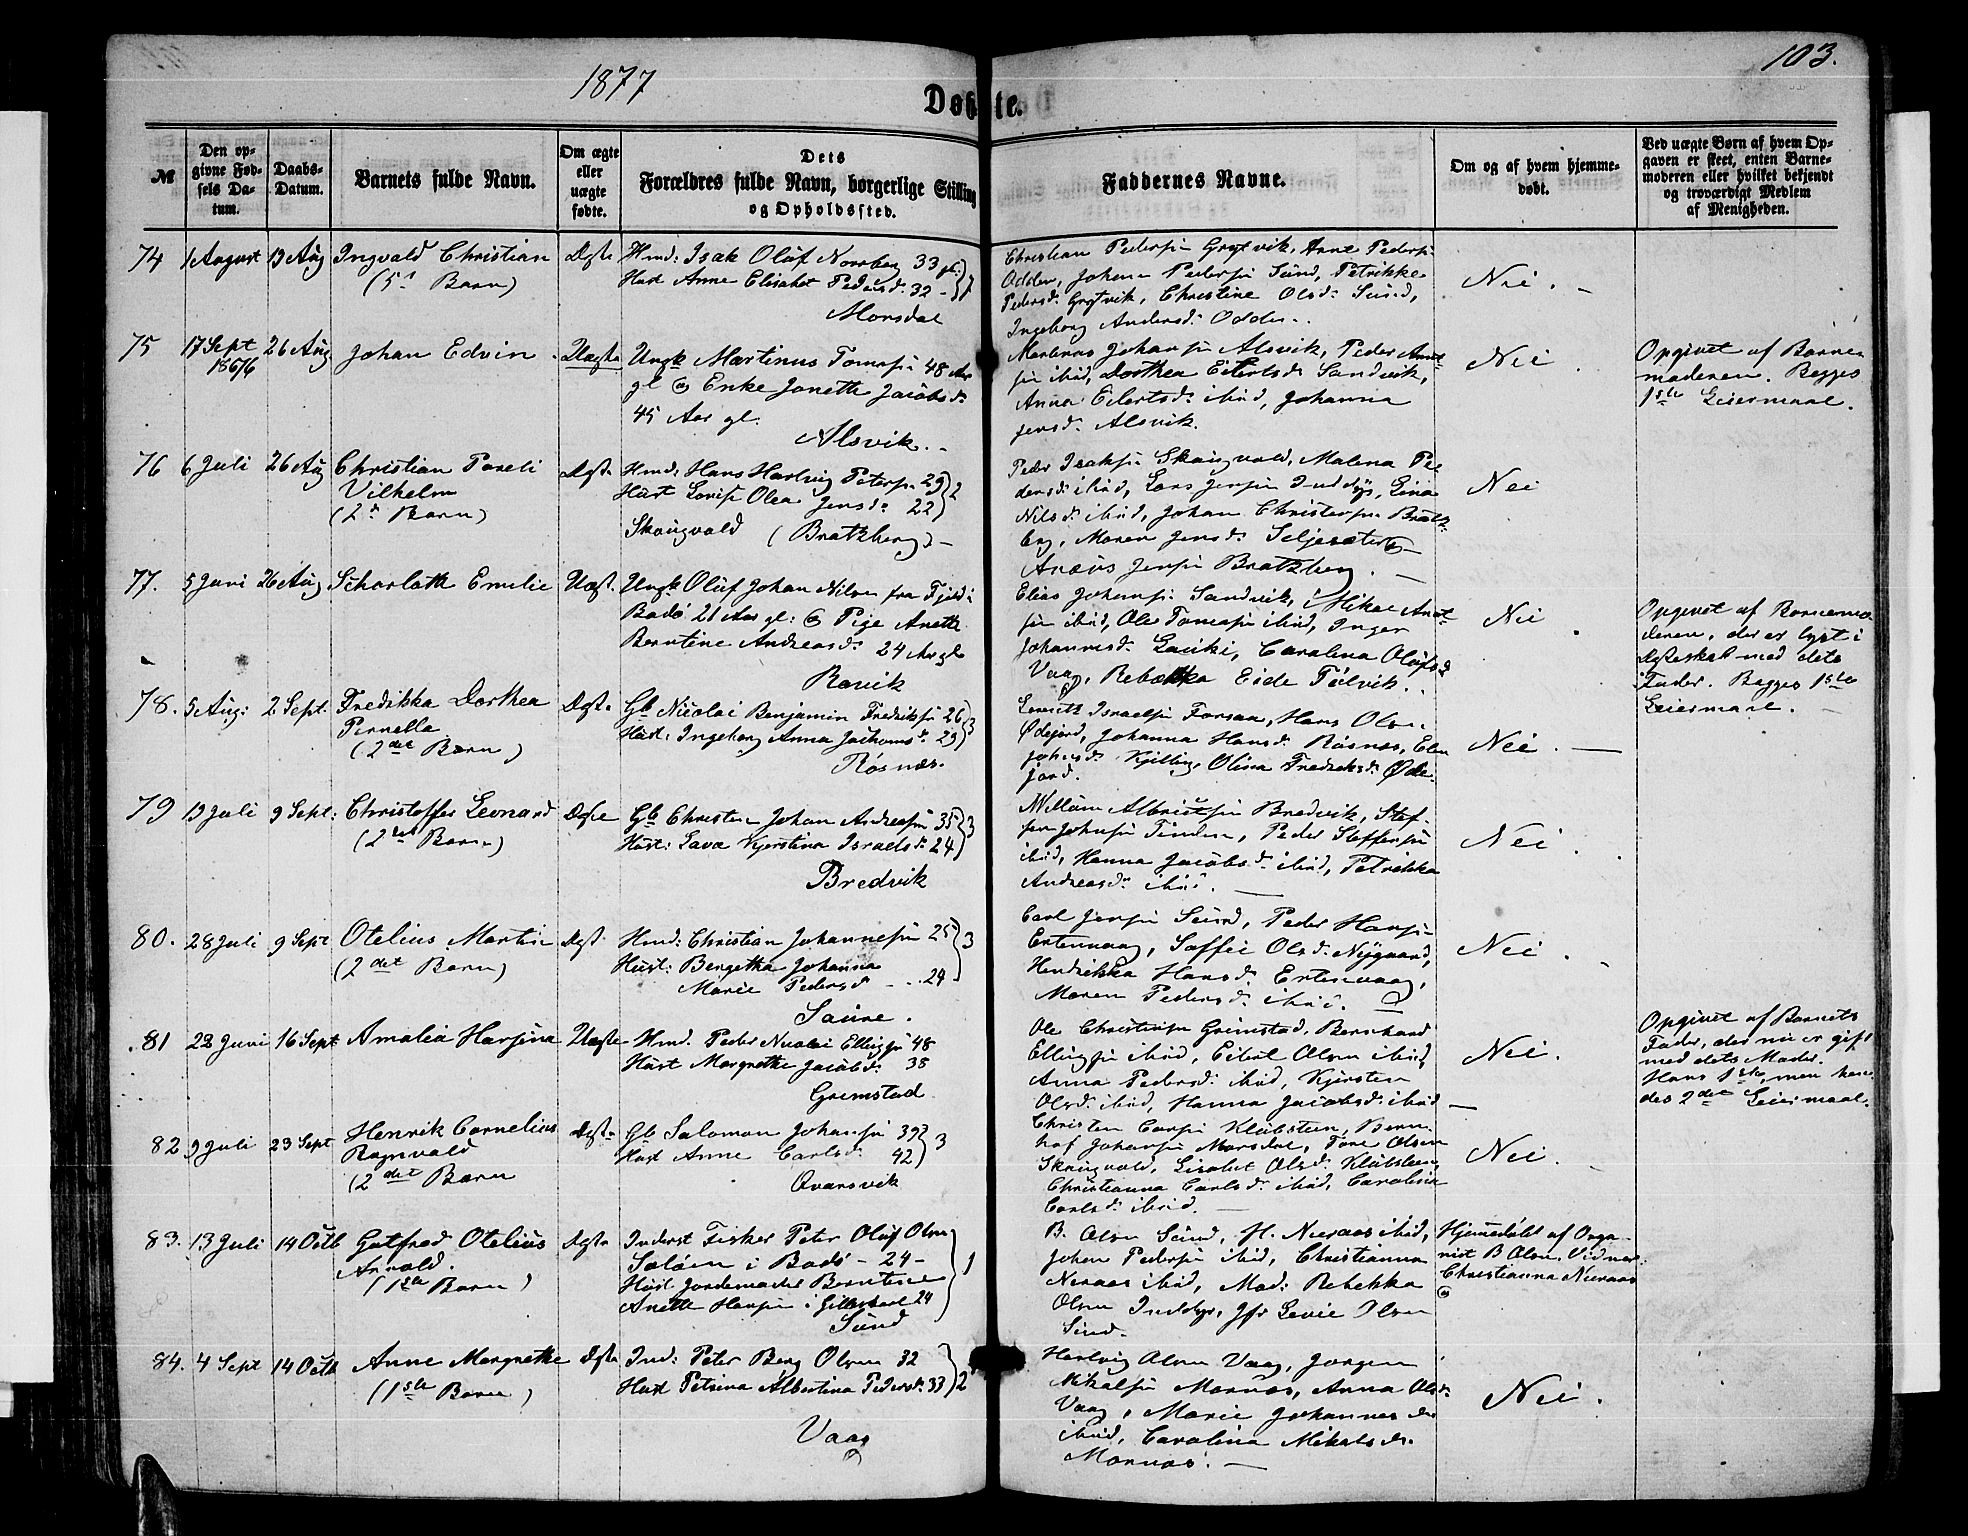 1877
103.
Døbte.
№
Den opgivne Fødsels Datum.
Daabs-Datum.
Barnets fulde Navn.
Om ægte eller uægte fødte.
Dets Forældres fulde Navn, borgerlige Stilling og Opholdssted.
Faddernes Navne.
Om og af hvem hjemmedøbt.
Ved uægte Børn af hvem Opgaven er skeet, enten Barnemoderen eller hvilket bekjendt og troværdigt Medlem af Menigheden.
74 1 August 19 Aug Ingvald Christian Ægte Hmd: Isak Oluf Norberg 33
(5t Barn) Hust Anne Elisabet Pedersd. 32 - 1
Morsdal
Christian Pedersen Grytvik, Arnt Pedersen
Odden, Johan Pedersen Sund, Petrikke
Pedersd: Grytvik, Christine Olsd: Sund,
Ingeborg Andersd: Odden.
Nei. -
75 17 Sept 1876 26 Aug Johan Edvin Uægte Ungk Martinus Tomasen 48 Aar
gl og Enke Janette Jacobsd:
45 Aar gl.
Alsvik.
Johansen Alsvik, Peder
ibid, Dorthea Eilertsd Sandvik,
Anna Eilertsd: ibid, Johanna
Jensd: Alsvik.
Nei
Opgivet af Barne
moderen. Begges
1ste Leiermaal.
76 6 Juli 26 Aug Christian Pareli Ægte Hmd: Hans Hartvig Petersen 29
Vilhelm Hust Lovise Olea Jensd: 22 2
(2d Barn) Skougvold (Bratberg) -
Peder Isaksen Skougvold, Malena Pe
dersd: ibid, Lars Jensen Inddyr, Lina
Nilsd: ibid, Johan Christensen Brat
berg, Maren Jensd: Seljesæter
Jensen Bratberg. -
Nei
77. 5 Juni 26 Aug Scharlotte Emelie Uægt. Ungk Oluf Johan Nilsen fra Fjeld i
Bodø 21 Aar gl: og Pige Anette
Berntine Andreasd: 24 Aar gl
Røvik
Elias Johansen Sandvik, Mikal
ibid, Ole Tomasen ibid, Inger
Johannesd: , Carolina Olufsd
Vaag, Rebekka Eide .
Nei
Opgivet af Barnemo
deren, der er lyst i
Ægteskab med dets
Fader. Begges 1ste
Leiermaal. -
78. 5 Aug: 2 Sept. Fredrikka Dorthea Ægte Gb Nicolai Benjamin Fredriksen 26
Pernella Hust: Ingeborg Anna Jachomsd 29 3
(2det Barn) Røsnæs.
Israelsen Forsaa, Hans Olsen
Ødejord, Johanna Hansd: Røsnæs, Elen
Johansd: Kjelling, Olina Fredriksd: Øde
jord.
Nei. -
79 19 Juli 9 Sept: Christoffer Leonard Ægte Gb Christen Johan Andreasen 35
(2det Barn) Hust: Lava Kjerstina Israelsd: 24 3
Bredvik
Willum Albrictsen Bredvik, Stef
fen Johnsen , Peder Steffensen
ibid, Hanna Jacobsd: ibid, Petrikka
Andreasd: ibid. -
Nei.
80. 28 Juli 9 Sept Otelius Martin Ægt. Hmd: Christian Johannesen 25
(2det Barn) Hust: Bergetha Johanna
Marie Pedersd - 24 3
Saure.
Carl Jensen Sund, Peder Hansen
Ertenvaag, Soffie Olsd: Nygaard,
Hendrikka Hansd: Ertenvaag,
Maren Pedersd: ibid. -
Nei.
81 22 Juni 16 Sept Amalia Hansina Uægte Hmd. Peder Nicolai Ellingsen 48
Hust Margrethe Jacobsd: 38
Grimstad
Ole Christensen Grimstad, Bernhard
Ellingsen ibid, Eilert Olsen ibid,
Anna Pedersd: ibid, Kjersten
Olsd: ibid, Hanna Jacobsd: ibid -
Nei.
Opgivet af Barnets
Fader, der nu er gift
med dets Moder.
Hans 1ste, men hen
des 2det Leiermaal.
82 9 Juli 23 Sept Henrik Cornelius Ægte Gb Salomon Johansen 39
Ragnvald Hust Anne Carlsd. 42 3
(2det Barn Qvarsvik
Christen Klubsteen, Bern
hof Johansen Morsdal, Tore Olsen
Skougvold, Lisabet Olsd: Klubsteen,
Christianna Carlsd: ibid, Carolina
Carlsd: ibid. -
Nei.
83. 13 Juli 14 Octb Gotfred Otelius Ægte Inderst Fisker Peter Oluf Olsen
Arnold. i Bodø - 24 -
(1ste Barn) Hust Jordemoder Berntine
Anette Hansen i Gilleskaal 24 1
Sund
B. Olsen Sund, H. ibid,
Johan Pedersen ibid, Christianna
ibid, Mad: Rebekka
Olsen Inddyr, Jfr Levie Olsen
Sund.
Hjemmedøbt af Orga
nist B Olsen. Vidner:
Christianna
84. 4 Sept 14 Octb Anne Margrethe Ægte Ind: Peter Berg Olsen 32
(1ste Barn) Hust Petrina Albertina Pedersd: 33 2
Vaag
Hartvig Olsen Vaag, Jørgen
Mikalsen Mornæs, Anna Olsd:
Vaag, Marie Johannesd:
ibid, Carolina Mikalsd.
Mornæs. -
Nei.